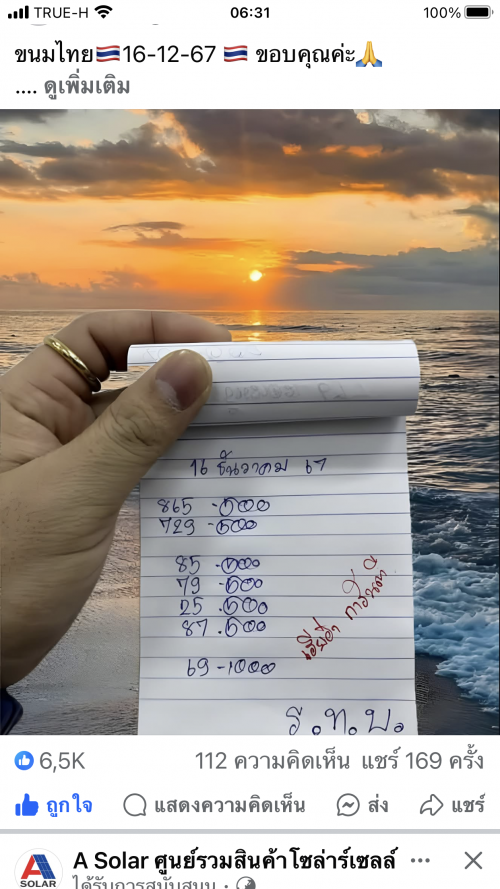 TRUE-H 06:31 100%
ขนมไทย🇹🇭16-12-67 🇹🇭 ขอบคุณค่ะ🙏
.... ดูเพิ่มเติม
16 ธันวาคม 67
865 -500
729 -500
85 -500
79 -500
25 .500
87 .500
69 -1000
ร.ท.บ.
6,5K 112 ความคิดเห็น แชร์ 169 ครั้ง
ถูกใจ แสดงความคิดเห็น ส่ง แชร์
A Solar ศูนย์รวมสินค้าโซล่าร์เซลล์ ...
SOLAR
ได้รับการสนับสนุน ·